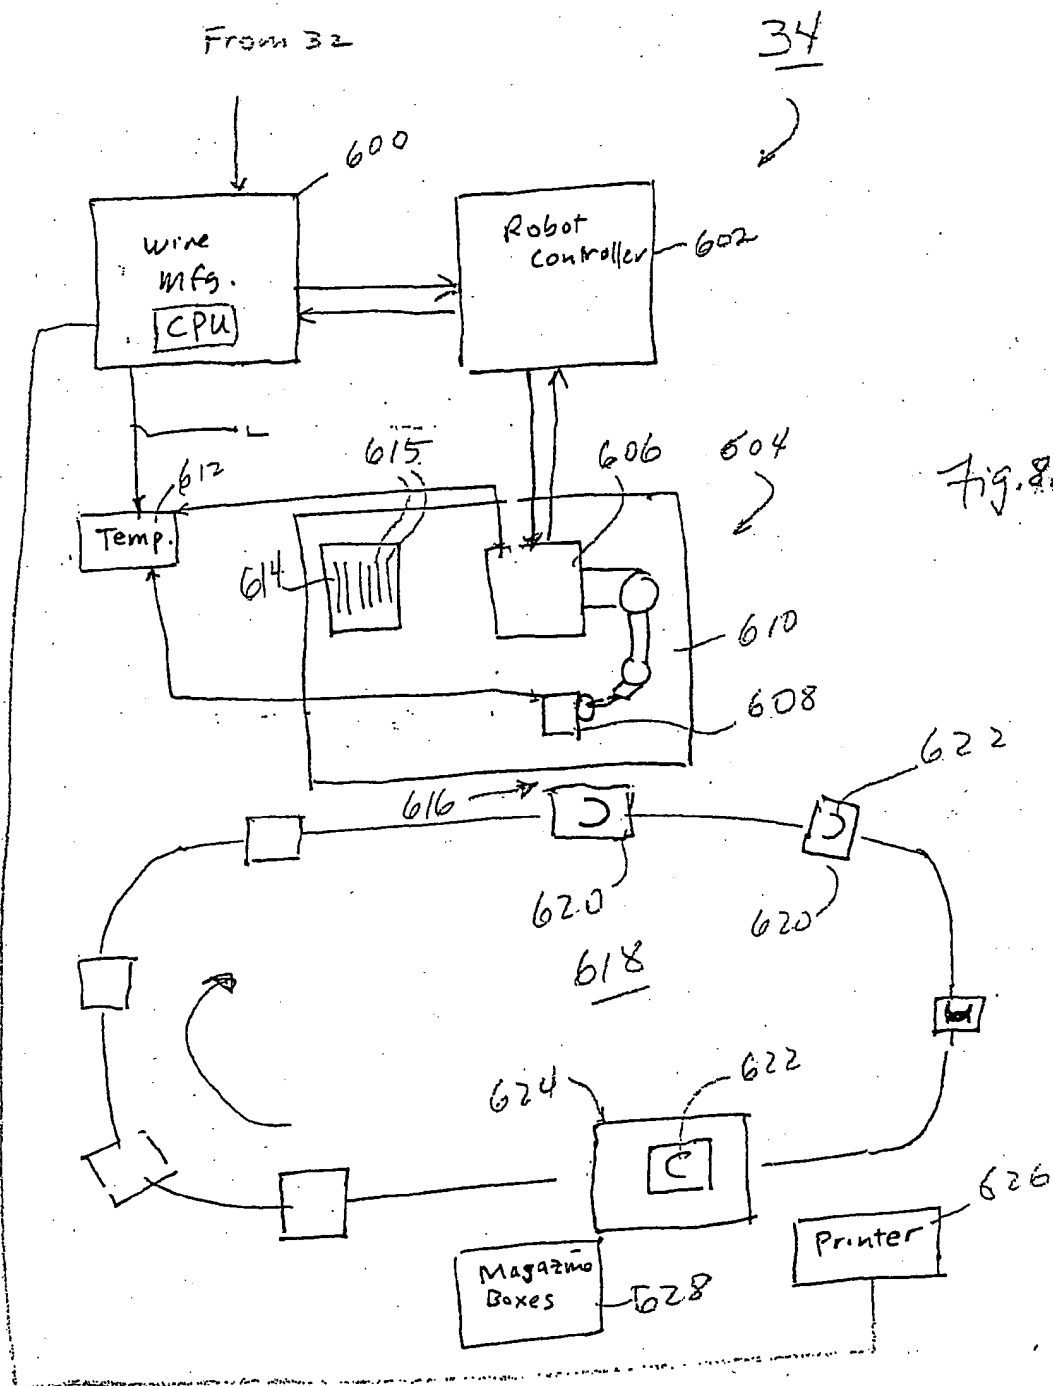 From 32
34
600
Wire
Mfg.
CPU
Robot
Controller
602
L
612
615
606
604
Fig. 8.
Temp.
614
610
608
622
616
620
620
618
622
624
626
Printer
Magazine
Boxes
628